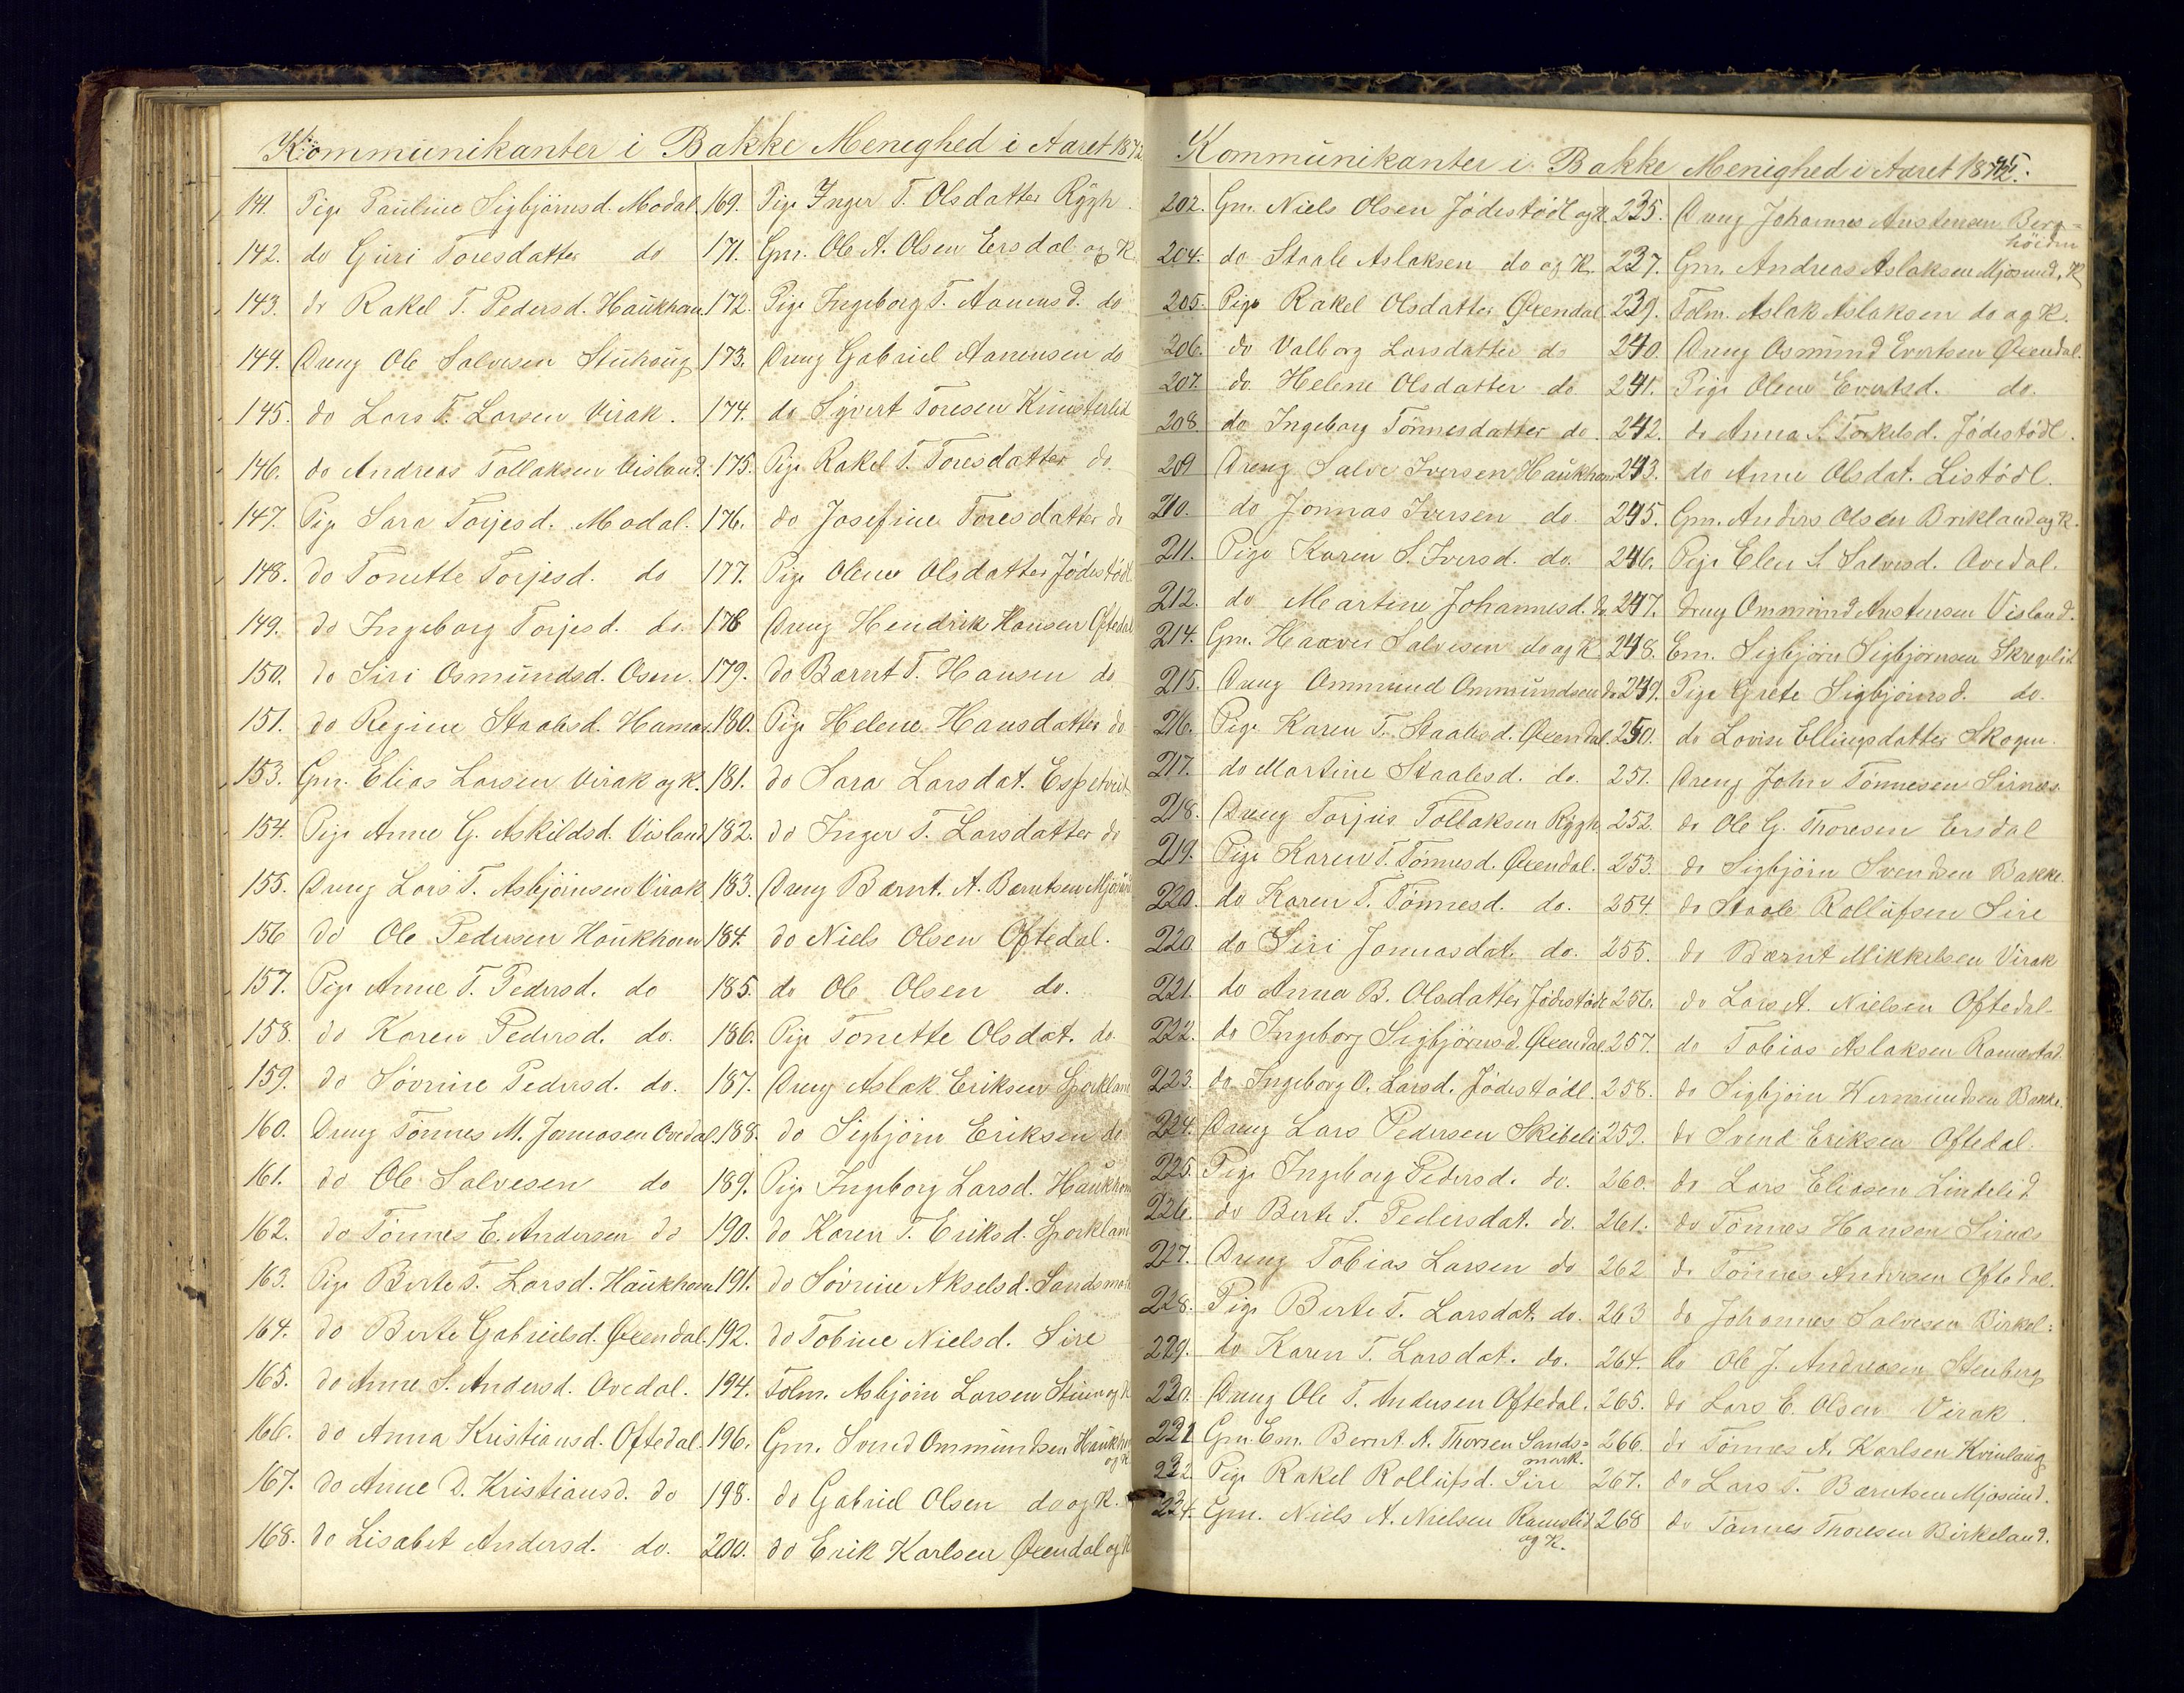 Kommunikanter i Bakke Meneghed i Aaret 1872
141. Pige Pauline Sigbjörnsd. Modal.
142. do Guri Toresdatter do
143. do Rakel T. Pedersd. Haukham
144. Dreng Ole Salvesen Stuhaug
145. do Lars T. Larsen Virak.
146. do Andreas Tollaksen Visland.
147. Pige Sara Torjesd. Modal.
148. do Tonette Torjesd. do
149. do Ingeborg Torjesd. do.
150. do Siri Osmundsd. Osen.
151. do Regine Staalesd. Hamar.
153. Gm. Elias Larsen Virak og K.
154. Pige Anne G. Askildsd. Visland
155. Dreng Lars T. Asbjörnsen Virak
156 do Ole Pedersen Haukhom
157. Pige Anne T. Pedersd. do
158. do Karen Pedersd. do.
159. do Sövrine Pedersd. do.
160. Dreng Tönnes M. Jonnasen Ovedal
161. do Ole Salvesen do
162. do Tönnes E. Andersen do
163. Pige Berte T. Larsd. Haukhom
164. do Berte Gabrielsd. Øxendal.
165. do Anne S. Andersd. Ovedal.
166. do Anna Kristiansd. Oftedal.
167. do Anne D. Kristiansd. do
168. do Lisabet Andersd. do.
169. Pige Inger T. Olsdatter Rygh.
171. Gm. Ole A. Olsen Ersdal og K
172. Pige Ingeborg T. Aanensd. do
173. Dreng Gabriel Aanensen do
174. do Syvert Toresen Kunsterlid
175. Pige Rakel T. Toresdatter do.
176. do Josefine Toresdatter do
177. Pige Olene Olsdatter Jödestödl
178 Dreng Hendrik Hansen Oftedal
179. do Bærnt T. Hansen do
180. Pige Helene Hansdatter do
181. do Sara Larsdat. Espetveit.
182. do Inger T. Larsdatter do
183. Dreng Bærnt. A. Bærntsen Mjösund
184. do Niels Olsen Oftedal.
185. do Ole Olsen do.
186. Pige Tonette Olsdat. do
187. Dreng Aslak Eriksen Sporkland
188. do Sigbjörn Eriksen do
189. Pige Ingeborg Larsd. Haukhom
190. do Karen T. Eriksd. Sporkland
191. do Sövrine Akselsd. Sandsmark
192. do Tobine Nielsd. Sire
194. Folm. Asbjörn Larsen og K
196. Gm. Svend Ommundsen Haukhom
og K
198. do Gabriel Olsen do og K.
200. do Erik Karlsen Øxendal og K
Kommunikanter i Bakke Menighed i Aaret 1875.
202. Gm. Niels Olsen Jödestödl og K.
204. do Staale Aslaksen do og K.
205. Pige Rakel Olsdatter Øxendal
206. do Valborg Larsdatter do
207. do Helene Olsdatter do.
208. do Ingeborg Tönnesdatter do.
209 Dreng Salve Iversen Haukhom
210. do Jonnas Iversen do.
211. Pige Karen S. Iversd. do.
212. do Martine Johannesd. do
214. Gm. Haaver Salvesen do og K.
215. Dreng Ommund Ommundsen do
216. Pige Karen T. Staalesd. Øxendal.
217. do Martine Staalesd. do.
218. Dreng Torjus Tollaksen Rygh.
219. Pige Karen T. Tönnesd. Øxendal.
220. do Karen T. Tönnesd. do.
220. do Siri Jonnasdat. do.
221. do Anna B. Olsdatter Jödestödl
222. do Ingeborg Sigbjörnsd. Øxendal
223. do Ingeborg O. Larsd. Jödestödl.
224. Dreng Lars Pedersen Skibeli
225. Pige Ingeborg Pedersd. do.
226. do Berte T. Pedersdat. do.
227. Dreng Tobias Larsen do
228. Pige Berte T. Larsdat. do.
229. do Karen T. Larsdat. do.
230. Dreng Ole T. Andersen Oftedal.
231 Gm. Em. Bernt A. Thorsen Sands=
mark.
232. Pige Rakel Rollufsd. Sire
234. Gm. Niels A. Nielsen Ramslid
og K.
235. Dreng Johannes Austensen Berg=
höiden
237. Gm. Andreas Aslaksen Mjosund, K
239. Folm. Aslak Aslaksen do og K.
240. Dreng Osmund Evertsen Øxendal.
241. Pige Olene Evertsd. do.
242. do Anna S. Torkelsd. Jödestödl.
243. do Anne Olsdat. Listödl.
245. Gm. Anders Olsen Birkland og K.
246. Pige Elen S. Salvesd. Ovedal.
247. Dreng Ommund Austensen Visland.
248. Em. Sigbjörn Sigbjörnsen Skregelid
249. Pige Grete Sigbjörnsd. do.
250. do Lovise Ellingsdatter Skogen.
251. Dreng John Tönnesen Sirnes
252. do Ole G. Thoresen Ersdal
253. do Sigbjörn Svendsen Bakke.
254. do Staale Rollufsen Sire
255. do Bærnt Mikkelsen Virak
256. do Lars A. Nielsen Oftedal-
257. do Tobias Aslaksen Ramestad.
258. do Sigbjörn Wermundsen Bakke.
259. do Svend Eriksen Oftedal.
260. do Lars Eliasen Lindelid
261. do Tönnes Hansen Sirnes
262 do Tönnes Andersen Oftedal.
263 do Johannes Salvesen Birkel:
264. do Ole J. Andreasen Stenberg
265. do Lars E. Olsen Virak.
266. do Tönnes A. Karlsen Kvinlaug
267. do Lars T. Bærntsen Mjosund.
268 do Tönnes Thoresen Birkeland.